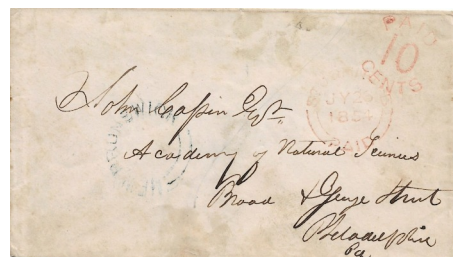 PAID
10
CENTS
JY 26
PAID
John Cassin Esqr
Academy of Natural Sciences
Broad & George Street
Philadelphia
Pa